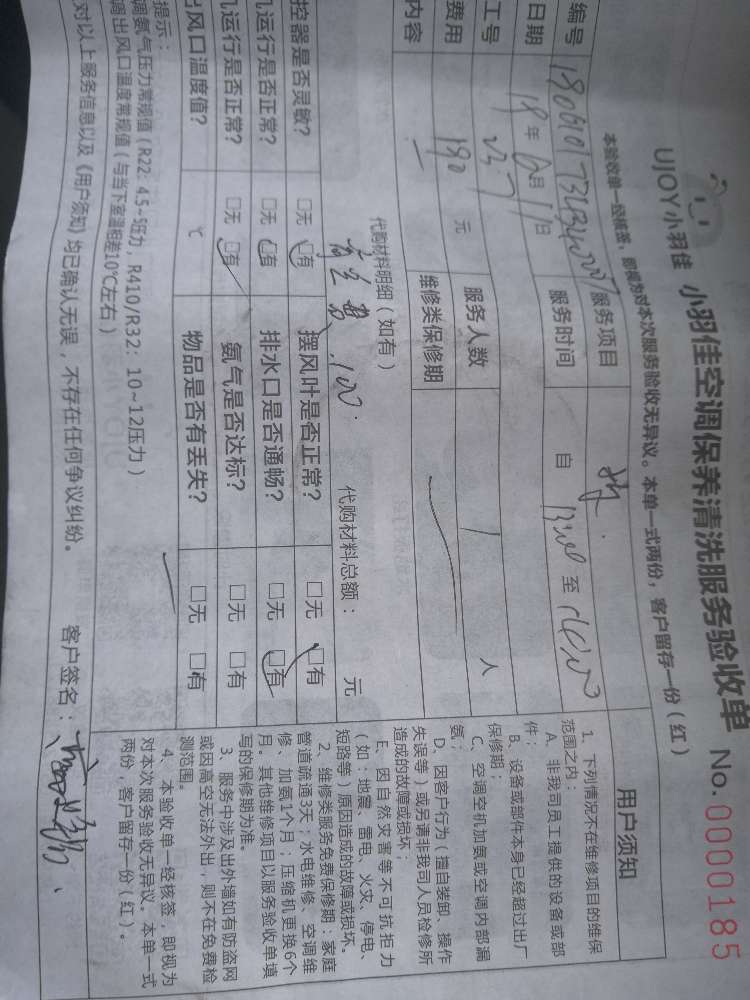 UJOY小羽佳 小羽佳空调保养清洗服务验收单 No.0000185
本验收单一经核签，即视为对本次服务验收无异议。本单一式两份，客户留存一份（红）
编号
服务项目
日期 18年6月11日
服务时间 自 至
工号 服务人数 1 人
费用 190 元
维修类保修期
内容
代购材料明细（如有）
高空费 100.
代购材料总额： 元
控器是否灵敏？ □无 □有 摆风叶是否正常？ □无 □有
机运行是否正常？ □无 □有 排水口是否通畅？ □无 □有
机运行是否正常？ □无 □有 氨气是否达标？ □无 □有
出风口温度值？ ℃ 物品是否有丢失？ □无 □有
提示：
调氨气压力常规值（R22：4.5~5压力，R410/R32：10~12压力）
调出风口温度常规值（与当下室温相差10℃左右）
对以上服务信息以及《用户须知》均已确认无误，不存在任何争议纠纷。 客户签名：
用户须知
1、下列情况不在维修项目的维保
范围之内：
A、非我司员工提供的设备或部
件；
B、设备或部件本身已经超过出厂
保修期；
C、空调空机加氨或空调内部漏
氨；
D、因客户行为（擅自装卸、操作
失误等）或另请非我司人员检修所
造成的故障或损坏；
E、因自然灾害等不可抗拒力
（如：地震、雷电、火灾、停电、
短路等）原因造成的故障或损坏。
2、维修类服务免费保修期：家庭
管道疏通3天；水电维修、空调维
修、加氨1个月；压缩机更换6个
月。其他维修项目以服务验收单填
写的保修期为准。
3、服务中涉及出外墙如有防盗网
或因高空无法外出，则不在免费检
测范围。
4、本验收单一经核签，即视为
对本次服务验收无异议。本单一式
两份，客户留存一份（红）。